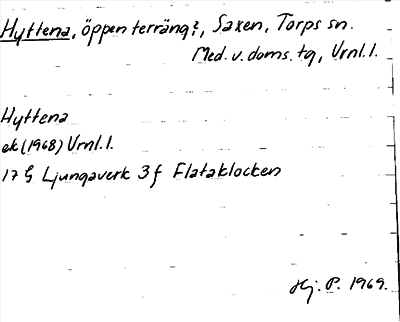 Hyttena, öppen terräng?, Saxen, Torps sn.
Med. v. doms. tg, Vrnl. l.
Hyttena
ek (1968) Vrnl. l.
17 G Ljungaverk 3 f Flataklocken
Hj. P. 1969.